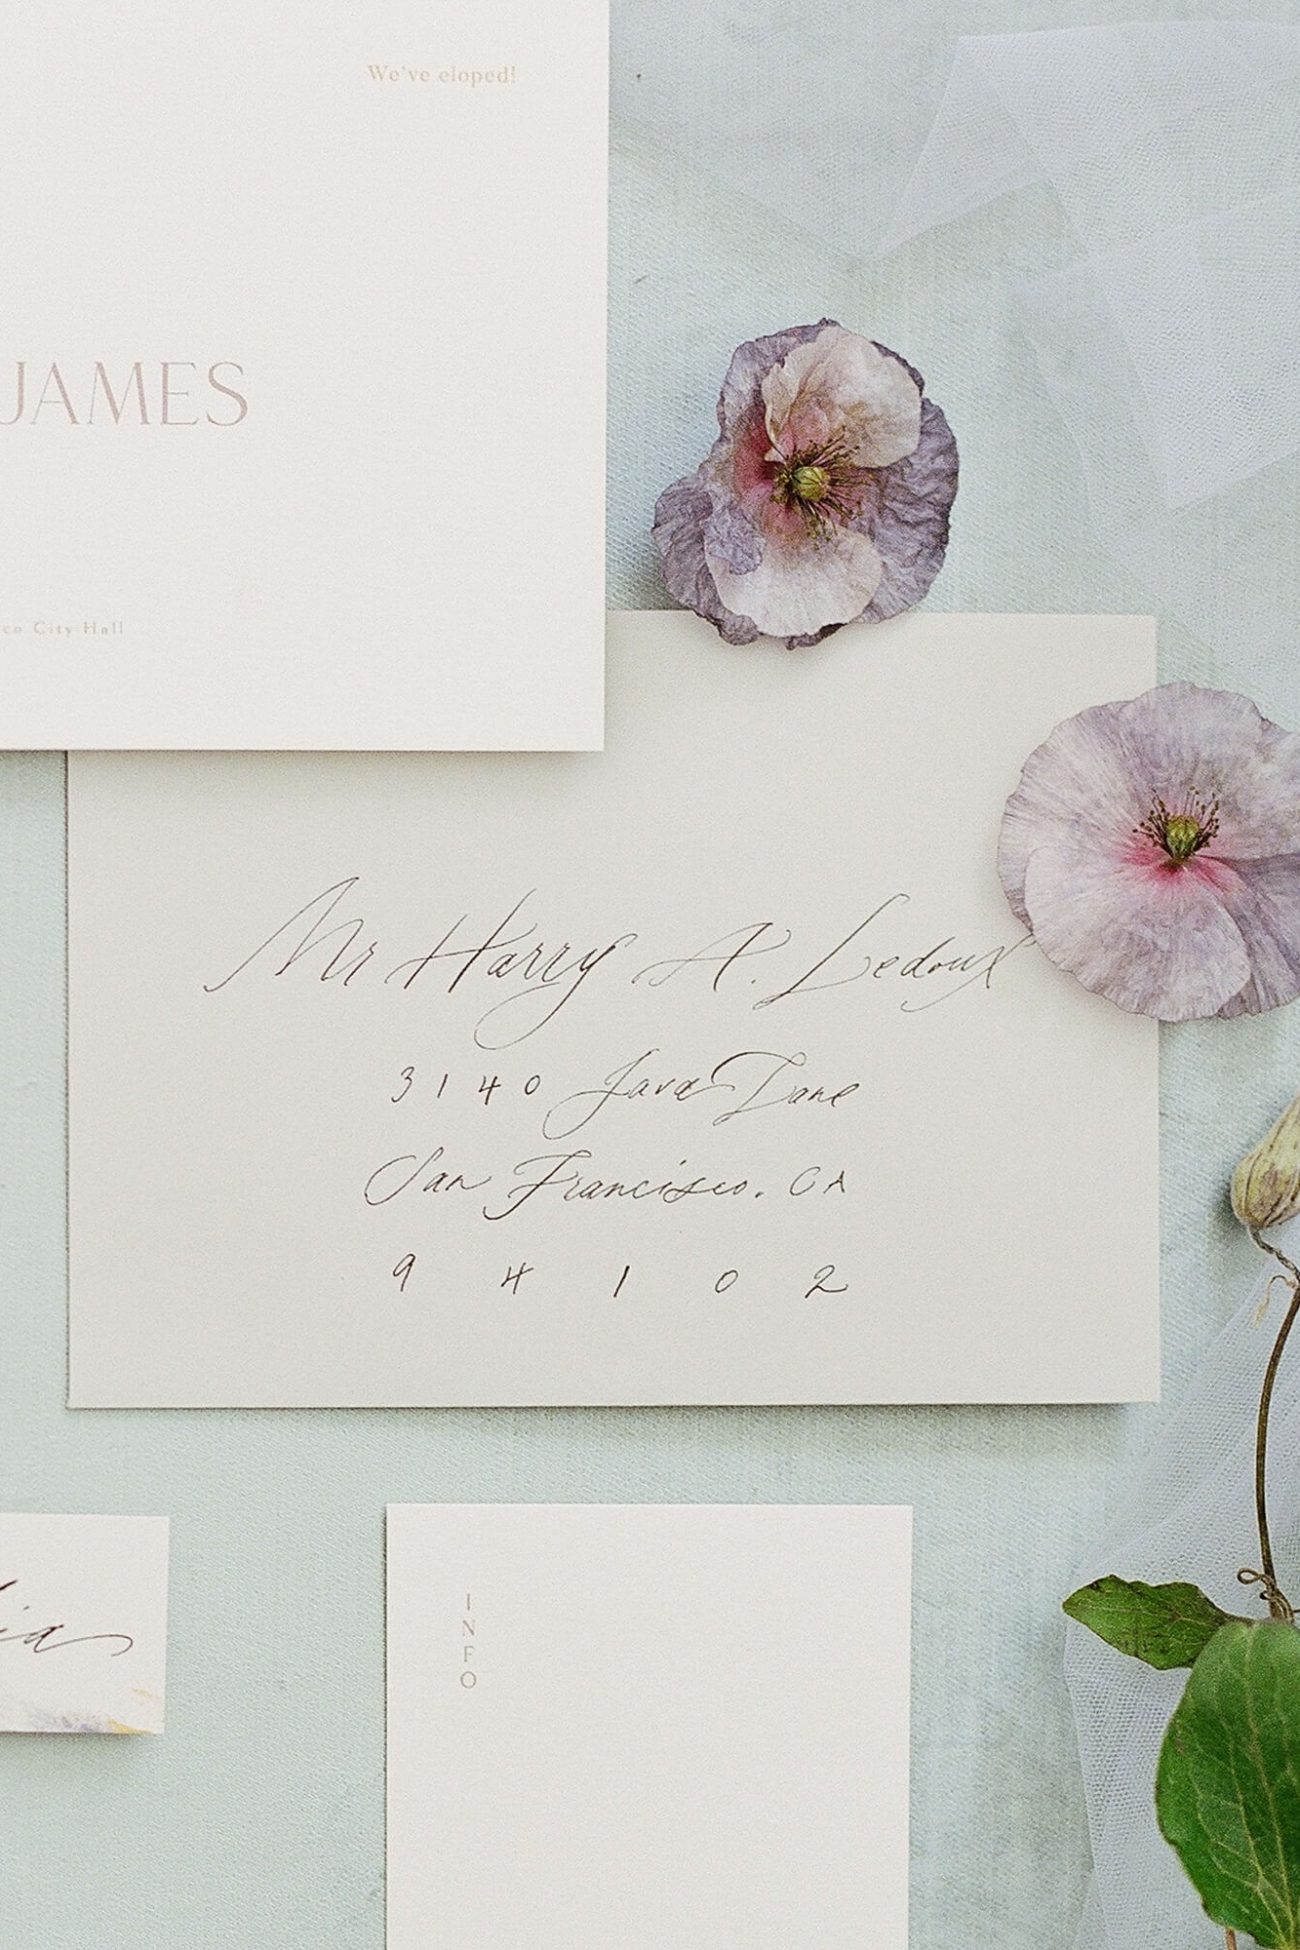 We've eloped!
JAMES
co City Hall
Mr Harry A. Ledoux
3140 Java Lane
San Francisco, CA
94102
INFO